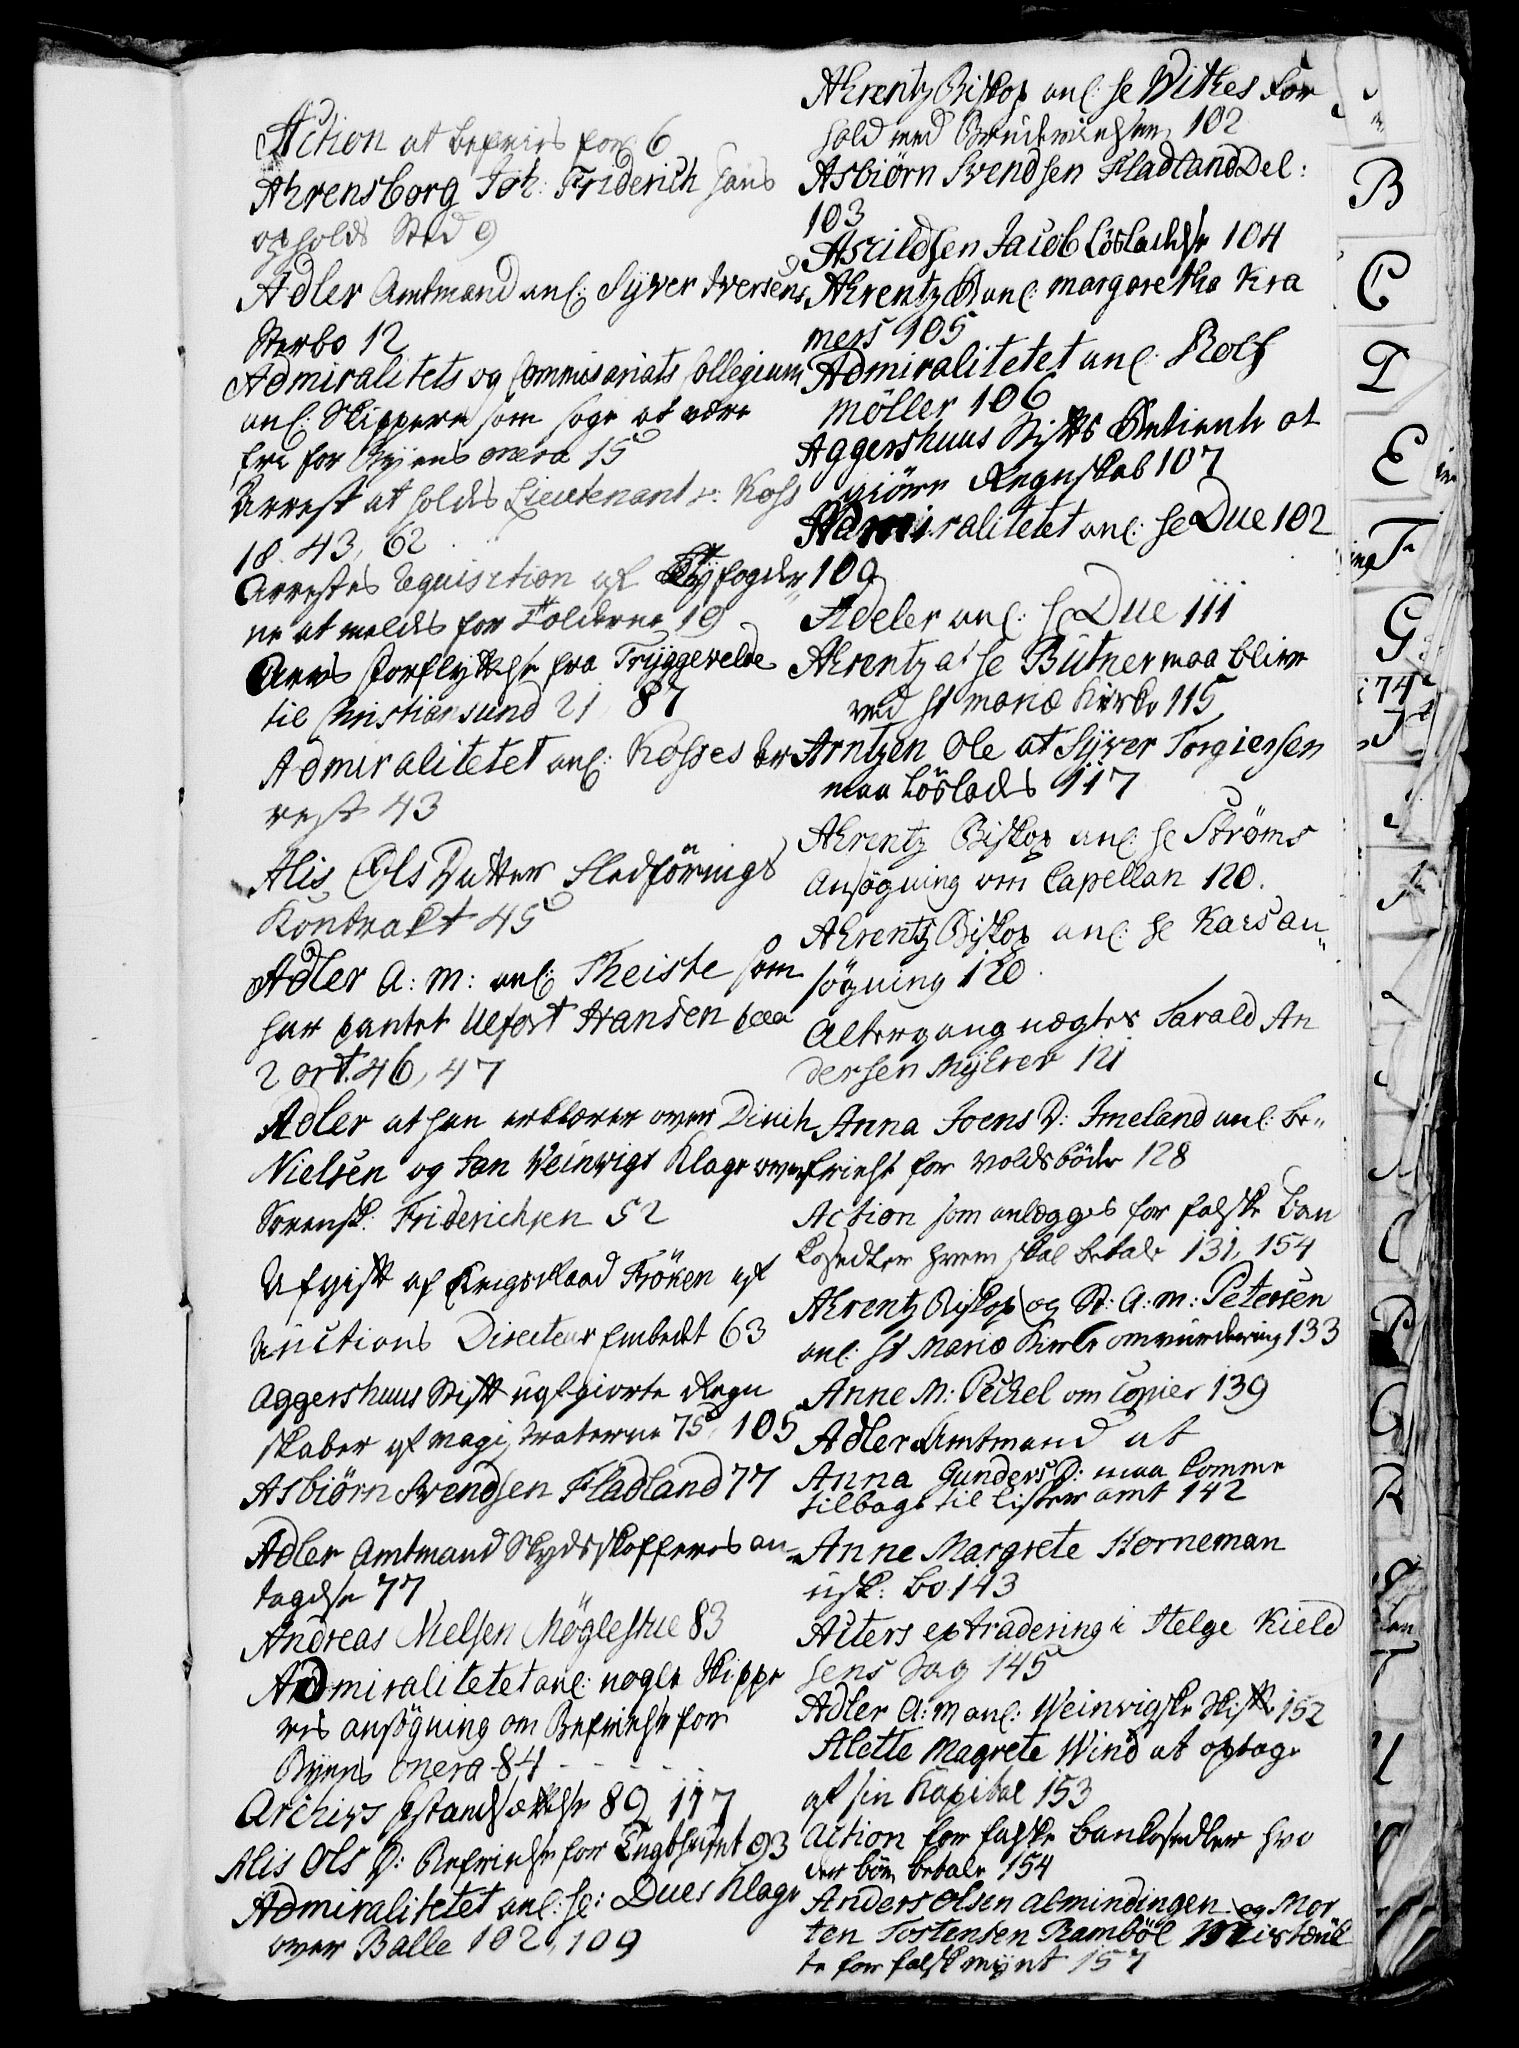 Action at befries for 6
Ahrensborg Joh: Friderich hans
opholds Sted 9
Adler Amtmand anl: Syver Iversens
Sterbo 12
Admiralitets og Commissariats Collegium
anl: Skippere som søge at være
frie for Byens onera 15
Arrest at holde Lieutenant v: Koss
18. 43, 62
Arrestes reqvisition af Byfogder
ne at meldes for Tolderne 19
Arvs forflyttelse fra Tryggevelde
til Christiansund 21, 87
Admiralitetet anl: Kosses Ar
rest 43
Alis Ols Datter fledförings
Kontrakt 45
Adler A: M: anl: Theiste som
har pantet Ulfort Hansen paa
2 ort. 46, 47
Adler at han erklærer over Dinch
Nielsen og Jan Weinvigs Klage over
Sorensk: Friderichsen 52
Afgift af Krigsraad Fröken af
Auctions Directeur Embedet 63
Aggershuus Stift uafgiorte Regn
skaber af magistraterne 75, 105
Asbiörn Svendsen Fladland 77
Adler Amtmand Skydsskafferes an
tagelse 77
Andreas Nielsen Möglestue 83
Admiralitetet anl: nogle Skippe
res ansögning om Befrielse for
Byens onera 84
Archivs istandsættelse 89, 117
Alis Ols D: Befrielse for Tugthuset 93
Admiralitetet anl: Hr: Dues Klage
over Balle 102, 109
Ahrentz Biskop anl: Hr Withes For
hold med 102
Asbiörn Svendsen Fladland Del:
103
Aslildsen Jacob Lösladelse 104
Ahrentz B anl: Margaretha Kra
mers 105
Admiralitetet anl: Rolf
Möller 106
Aggershuus Stifts at
giöre Regnskab 107
Admiralitetet anl: Hr Due 102
109
Adeler anl: Hr Due 111
Ahrentz at Hr Bütner maa blive
ved St Mariæ Kirke 115
Arntzen Ole at Syver Torgiersen
maa Löslades 117
Ahrentz Biskop anl: Hr Ströms
Ansögning om Capellan 120.
Ahrentz Biskop anl: Hr Kaas an
sögning 120.
Altergang nægtes Tarald An
dersen Myhrer 121
Anna Joens D: Imeland anl: Be
frielse for Voldsböder 128
Action som anlægges for falske Ban
kosedler hvem skal betale 131, 154
Ahrentz Biskop og St: A: m: Petersen
anl: St Mariæ Kirke omvurdering 133
Anne M: Peckel om Copier 139
Adler Amtmand at
Anna Gunders D: maa komme
tilbage til Lister amt 142
Anne Margrete Horneman
usk: bo: 143
Acters extradering i Helge Kield
sens Sag 145
Adler A: M anl: Weinvigske Skifte 152
Alette Magrete Wind at optage
af sin Kapital 153
Action for falske bankosedler hvo
der bör betale 154
Anders Olsen Almindingen og Mor
ten Tostensen Ramböl Mistænk
te for falsk mynt 157
B
C
D
E
F
G
R